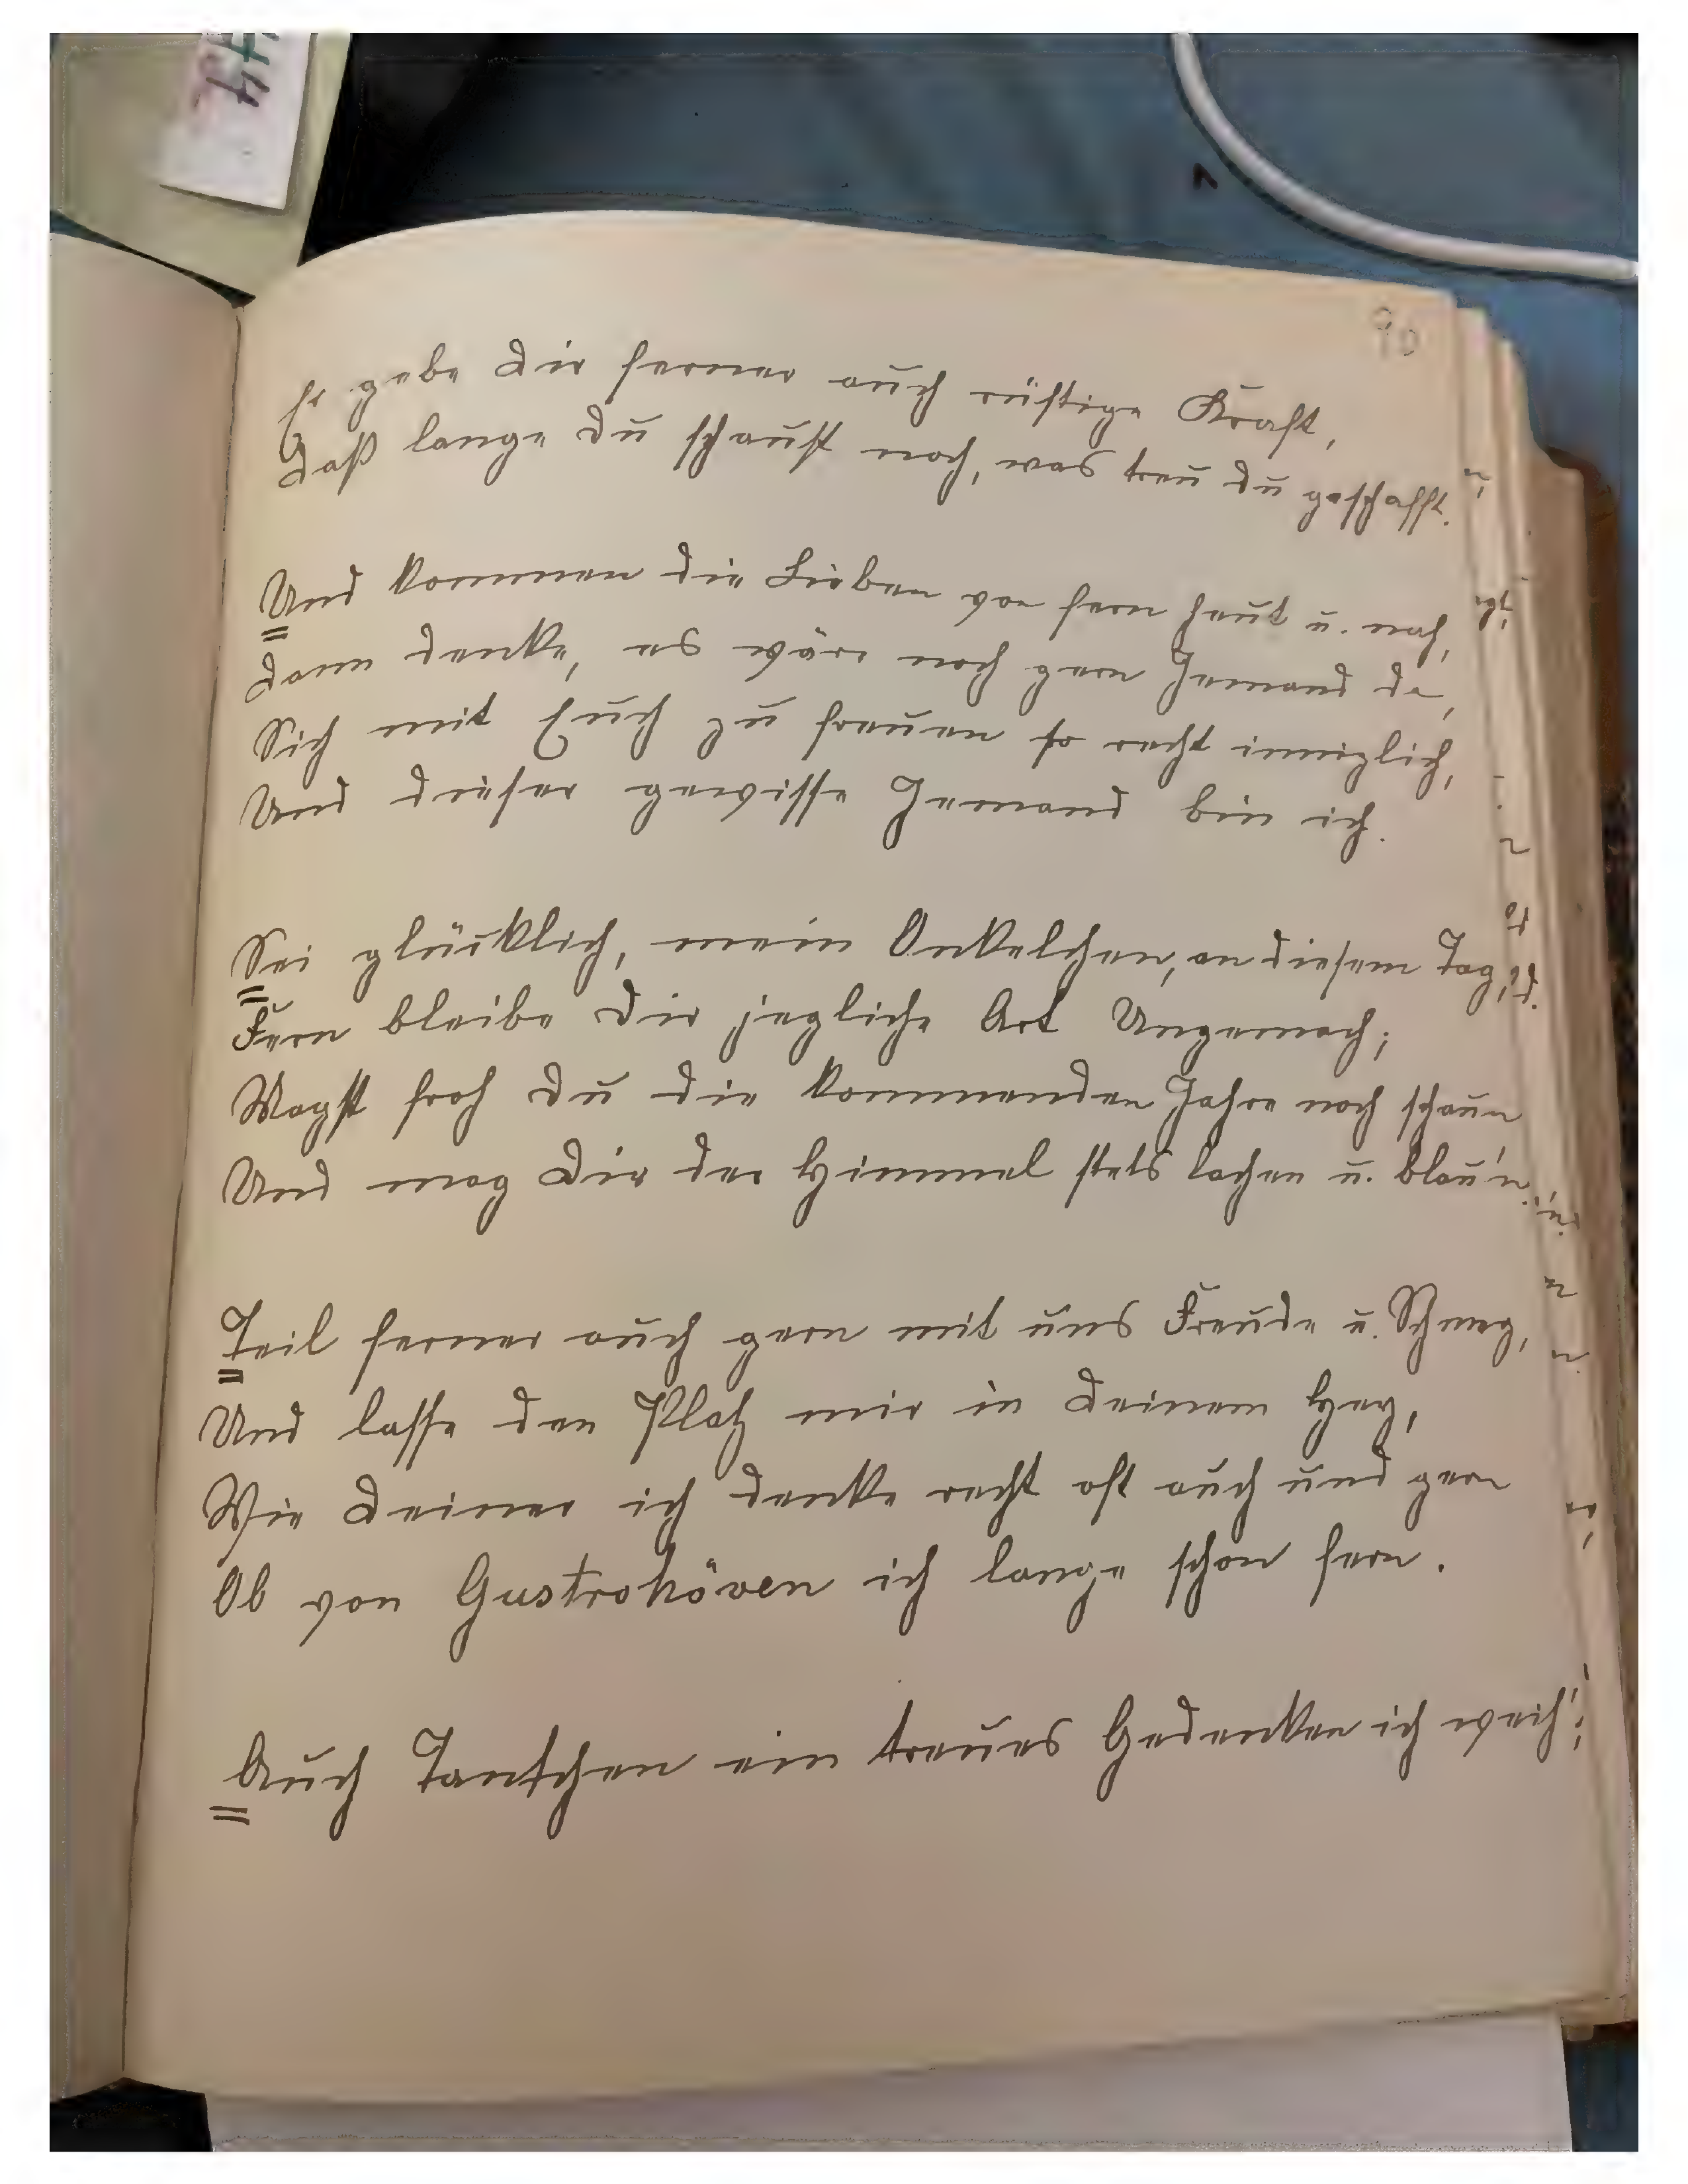 90
Er gebe Dir ferner auch rüstige Kraft,
Daß lange Du schaust noch, was treu Du geschafft.
Und kommen die Lieben von fern heut u. nah,
Dann denke, es wäre noch gern Jemand da,
Sich mit Euch zu freuen so recht inniglich,
Und dieser gewisse Jemand bin ich.
Sei glücklich, mein Onkelchen, an diesem Tag,
Fern bleibe Dir jegliche Art Ungemach;
Magst froh Du die kommenden Jahre noch schaun
Und mag Dir der Himmel stets lachen u. blau'n.
Teil ferner auch gern mit uns Freude u. Schmerz,
Und lasse den Platz mir in Deinem Herz,
Wie Deiner ich denke recht oft auch und gern
Ob von Gustrohöven ich lange schon fern.
Auch Tantchen ein treues Gedenken ich weih';